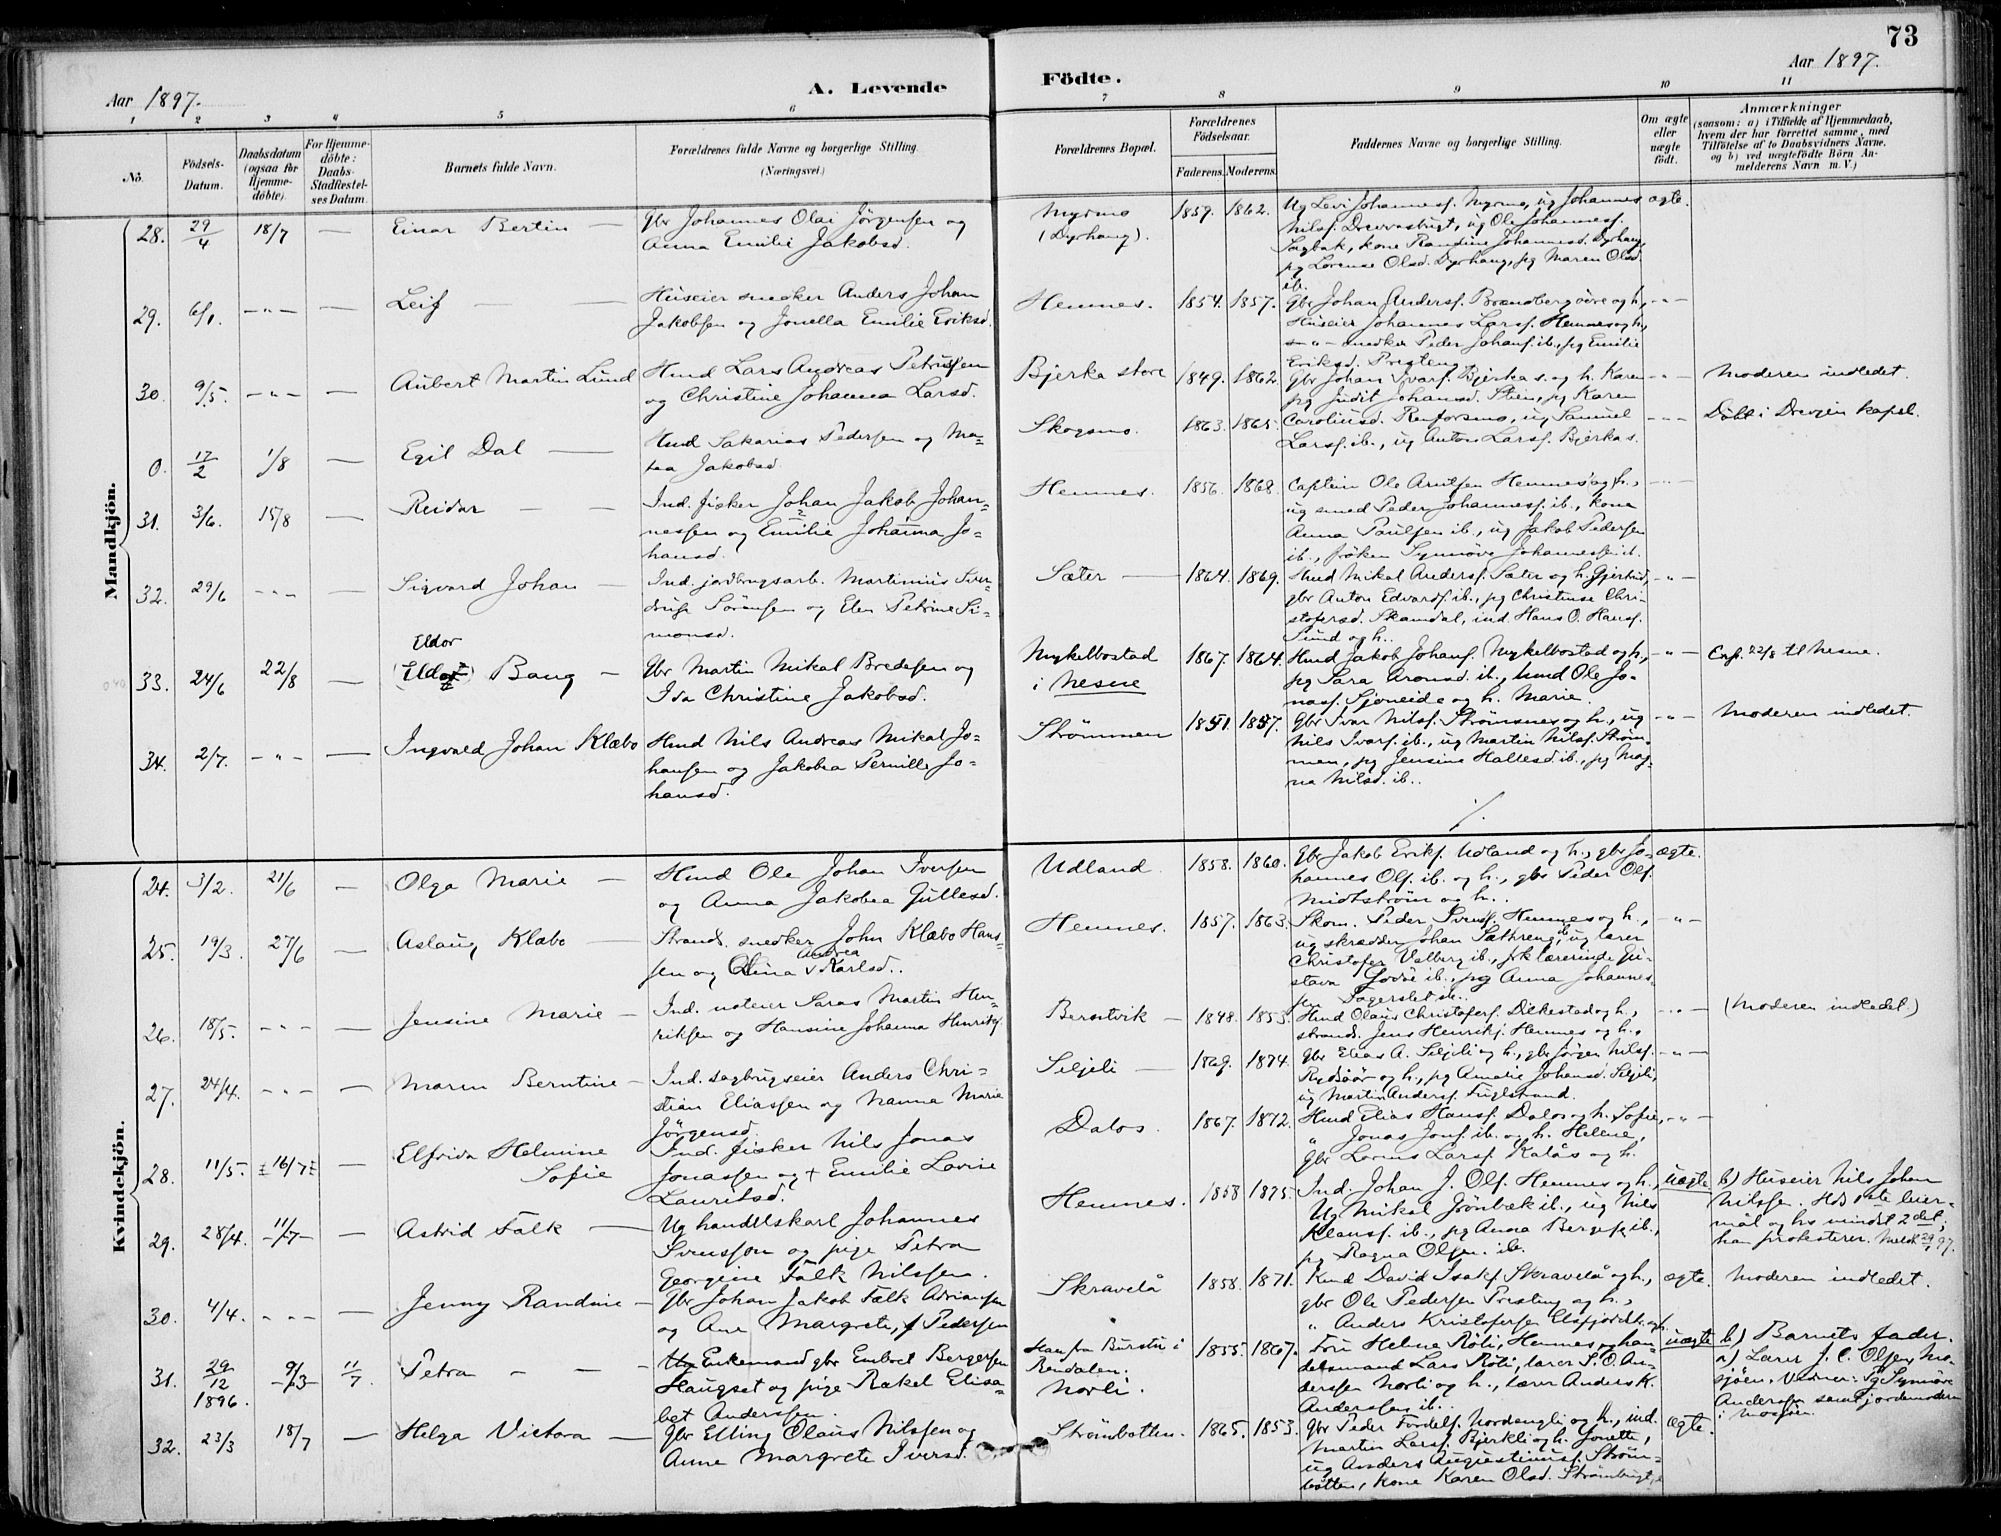 73
Aar 1897.
A. Levende
Födte.
Aar 1897.
1 2 3 4 5 6 7 8 9 10 11
No.
Födsels-
Datum.
Daabsdatum
(ogsaa for
Hjemme-
döbte)
For Hjemme-
döbte:
Daabs-
Stadfæstel-
ses Datum.
Barnets fulde Navn.
Forældrenes fulde Navne og borgerlige Stilling
(Næringsvei.)
Forældrenes Bopæl.
Forældrenes
Födselsaar.
Faderens. Moderens.
Faddernes Navne og borgerlige Stilling.
Om ægte
eller
uægte
födt.
Anmærkninger
(saasom: a) i Tilfælde af Hjemmedaab,
hvem der har forrettet samme, med
Tilföielse af to Daabsvidners Navne.
og b) ved uægtefödte Börn An-
melderens Navn m. V.)
Mandkjön.
28. 29/4 18/7 — Einar Bertin —
Gbr Johannes Olai Jörgensen og
Anna Emilie Jakobsd.
Myrmo
(Dyrhaug).
1859. 1862.
Ug Levi Johannesf. Myrmo, ug Johannes
Nilsf. Drevvasbugt, ug Ole Johannesf.
Sagbak, kone Randine Johannesd. Dyrhaug,
pg Lorense Olsd. Dyrhaug, pg Maren Olsd.
ib.
ægte.
29. 6/1. — " — — Leif — —
Huseier snedker Anders Johan
Jakobsen og Jonella Emilie Eriksd.
Hemnes. 1854. 1857.
Gbr Johan Andersf. Brændbergøere og h,
Huseier Johannes Larsf. Hemnes og h,
— " — snedker Peder Johanf. ib., pg Emilie
Eriksd. Presteng
— " —
30. 9/5. — " — — Aubert Martin Lund
Hmd Lars Andreas Petrusen
og Christine Johanna Larsd.
Bjerka store 1849. 1862.
Gbr Johan Ivarf. Bjerka s. og h. Karen
pg Judit Johansd. Stien, pg Karen
Caroliusd. Renforsmo, ug Samuel
Larsf. ib., ug Anton Larsf. Bjerka s.
— " —
Moderen indledet.
0. 17/2 1/8 — Egil Dal —
Hmd Sakarias Pedersen og Ma-
tea Jakobsd.
Skogsmo. 1863. 1865.
— " —
Döbt i Drevjen kapel.
31. 3/6. 15/8 — Reidar — —
Ind. fisker Johan Jakob Johan-
nessen og Emilie Johanna Jo-
hansd.
Hemnes. 1856. 1868.
Captein Ole Arntsen Hemnes og h.,
ug smed Peder Johannesf. ib., kone
Anna Paulsen ib., ug Jakob Pedersen
ib., fröken Synnöve Johannessen ib.
— " —
32. 29/6 — " — — Sigvard Johan —
Ind. jordbrugsarb. Martinius
Sörensen og Elen Petrine Si-
monsd.
Sæter — 1864. 1869.
Hmd Mikal Andersf. Sæter og h. Gjertrud,
gbr Anton Edvardf. ib., pg Christense Chri-
stofersd. Skamdal, ind. Hans O. Hansf.
Sund og h.
— " —
33. 24/6 22/8 — Eldor
(Eldor) Bang —
Gbr Martin Mikal Bredesen og
Ida Christine Jakobsd.
Nykelbostad
i Nesne
1867. 1864.
Hmd Jakob Johanf. Nykelbostad og h,
pg Sara Aronsd. ib., hmd Ole Jo-
nasf. Sjoneide og h. Marie.
— " —
22/8 til Nesne.
34. 2/7. — " — — Ingvald Johan Klæbo
Hmd Nils Andreas Mikal Jo-
hansen og Jakobea Pernille Jo-
hansd.
Strømmen 1851. 1857.
Gbr Ivar Nilsf. Strömsnes og h., ug
Nils Ivarf. ib., ug Martin Nilsf. Ström-
men, pg Jensine Hallesd. ib., pg Mag-
na Nilsd. ib..
— " —
Moderen indledet.
Kvindekjön.
24. 3/2. 21/6 — Olga Marie —
Hmd Ole Johan Iversen
og Anna Jakobea Gullesd.
Udland 1858. 1860.
Gbr Jakob Erikf. Udland og h., gbr Jo-
hannes Olf. ib. og h., gbr Peder Olf.
Midtström og h..
ægte.
25. 19/3. 27/6 — Aslaug Klæbo —
Strands. snedker John Klæbo Hans-
sen og Olina Andrea Karlsd..
Hemnes. 1857. 1863.
Skom. Peder Svensf. Hemnes og h.,
ug skrædder Johan Sæthreng ib., ug lærer
Christofer Valberg ib., frk lærerinde Gu-
stava ib., pg Anna Johannes-
sen Fagerslet ib..
— " —
26. 18/5. — " — — Jensine Marie —
Ind. noteier Saras Martin Hen-
riksen og Hansine Johanna Henriks.
Berntvik — 1848. 1853.
Hmd Olaus Christoferf. Dilkestad og h.,
strands. Jens Henrikf. Hemnes og h.,
— " —
(Moderen indledet.)
27. 24/4. — " — — Maren Berntine —
Ind. sagbrugseier Anders Chri-
stian Eliassen og Nanna Marie
Jörgensd.
Seljeli — 1869. 1874.
Gbr Elias A. Seljeli og h., gbr Jörgen Nilsf.
og h., pg Amalie Johansd. Seljeli,
ug Martin Andersf. Fuglstrand.
— " —
28. 11/5. 16/7 — Elfrida Helmine
Sofie
Ind. fisker Nils Jonas
Jonassen og + Emilie Lovise
Lauritsd.
Dalos. 1867. 1872.
Hmd Elias Hansf. Dalos og h. Sofie,
" Jonas Jonf. ib. og h. Helene,
Gbr Lorens Larsf. Kalaas og h.
— " —
29. 28/4. 11/7 — Astrid Falk —
Ug handelskarl Johannes
Svensson og pige Petra
Georgine Falk Nilssen.
Hemnes. 1858 1875.
Ind. Johan J. Olf. Hemnes og h.,
Ug Mikal Grönbæk ib., ug Nils
Klausf. ib., pg Anna Bergesf. ib.,
pg Ragna Olsen ib.
uægte
b) Huseier Nils Johan
Nilssen. Hds 1ste leier-
mål og hs mindst 2det;
han protesterer.
30. 4/4. — " — — Jenny Randine —
Gbr Johan Jakob Falk Adriansen
og Ane Margrete, f Pedersen
Skravelå 1858. 1871.
Kmd David Isakf. Skravelå og h,
gbr Ole Pedersen Presteng og h.,
" Anders Kristofersen Elsfjordli og h.
ægte.
Moderen indledet.
31. 29/12 1896. 9/3 11/7. Petra — —
Enkemand gbr Embret Bergersen
Haugset og pige Rakel Elisa-
bet Anderssen.
Han fra Burstu i
Rendalen.
Norli.
1855. 1867.
Fru Helene Röli, Hemnes og han-
delsmand Lars Röli, lærer P. O. An-
derssen Norli og h., lærer Anders K.
Anderssen ib..
uægte
b) Barnets fader.
a) Lærer J. C. Olsen, Mo-
sjöen. Vidner: Pg Synnöve
Anderssen samt jordemoderen
i Mosjöen.
32. 23/3 18/7 — Helga Victora —
Gbr Elling Olaus Nilssen og
Anne Margrete Iversd.
Strömbotten. 1865. 1853.
Gbr Peder Fordelf. Nordengli og h, ind.
Martin Larsf. Bjerkli og h. Jonette,
ug Anders Augustinusf. Ström-
botten, kone Karen Olsd. Strömbugt,
ægte.